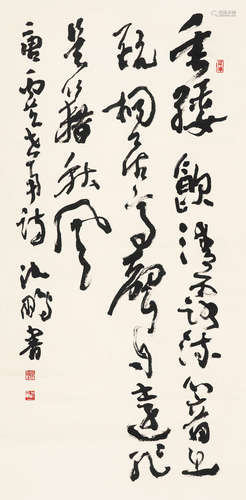 垂緌飲清露流響出
疏桐居高聲自遠非
是藉秋風
唐虞世南詩 沈鵬書